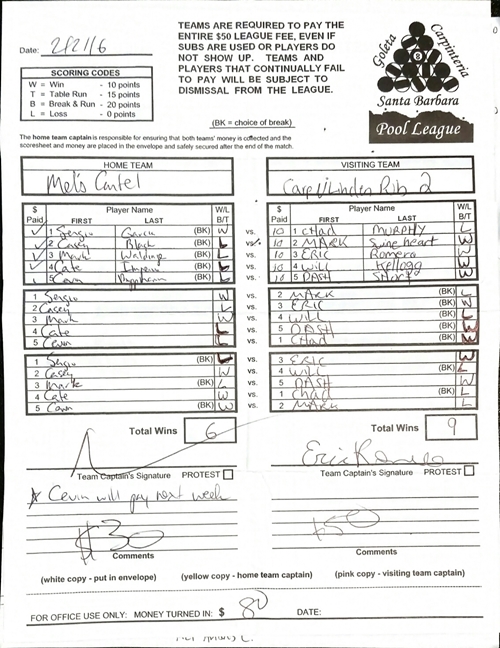 TEAMS ARE REQUIRED TO PAY THE
ENTIRE $50 LEAGUE FEE, EVEN IF
SUBS ARE USED OR PLAYERS DO
NOT SHOW UP. TEAMS AND
PLAYERS THAT CONTINUALLY FAIL
TO PAY WILL BE SUBJECT TO
DISMISSAL FROM THE LEAGUE.
Date: 2/21/6
Goleta Carpinteria
8
Santa Barbara
Pool League
SCORING CODES
W = Win - 10 points
T = Table Run - 15 points
B = Break & Run - 20 points
L = Loss - 0 points
(BK = choice of break)
The home team captain is responsible for ensuring that both teams' money is collected and the
scoresheet and money are placed in the envelope and safely secured after the end of the match.
HOME TEAM VISITING TEAM
Mel's Cartel Linden Pub 2
$ Paid Player Name FIRST LAST W/L B/T $ Paid Player Name FIRST LAST W/L B/T
1 Sergio Garcia (BK) W vs. 10 1 CHAD MURPHY L
2 Casey Black (BK) L vs. 10 2 MARK Swineheart W
3 Mark (BK) L vs. 10 3 ERIC Romero W
4 Cate (BK) L vs. 10 4 WILL Kellogg W
5 Cevin (BK) L vs. 10 5 DASH W
1 Sergio W vs. 2 MARK (BK) L
2 Casey L vs. 3 ERIC (BK) W
3 Mark W vs. 4 WILL (BK) L
4 Cate L vs. 5 DASH (BK) W
5 Cevin L vs. 1 CHAD (BK) W
1 Sergio (BK) L vs. 3 ERIC W
2 Casey W vs. 4 WILL (BK) L
3 Mark (BK) L vs. 5 DASH W
4 Cate W vs. 1 Chad (BK) L
5 Cevin (BK) W vs. 2 MARK L
Total Wins 6 Total Wins 9
Eric Romero
Team Captain's Signature PROTEST Team Captain's Signature PROTEST
Cevin will pay next week
$30 $50
Comments Comments
(white copy - put in envelope) (yellow copy - home team captain) (pink copy - visiting team captain)
FOR OFFICE USE ONLY: MONEY TURNED IN: $ 80 DATE: